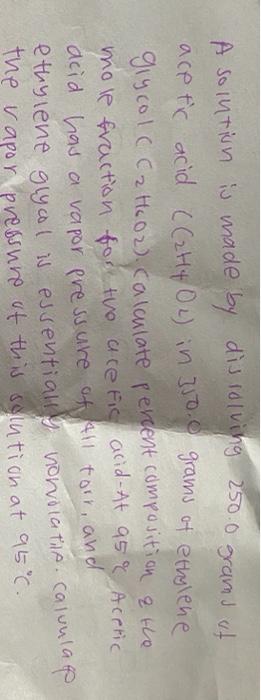 A solution is made by dissolving 250.0 grams of
acetic acid (C2H4O2) in 350.0 grams of ethylene
glycol (C2H6O2) Calculate percent composition & the
mole fraction for the acetic acid. At 95° Acetic
acid has a vapor pressure of 411 torr, and
ethylene glycol is essentially nonvolatile. Calculate
the vapor pressure of this solution at 95°C.